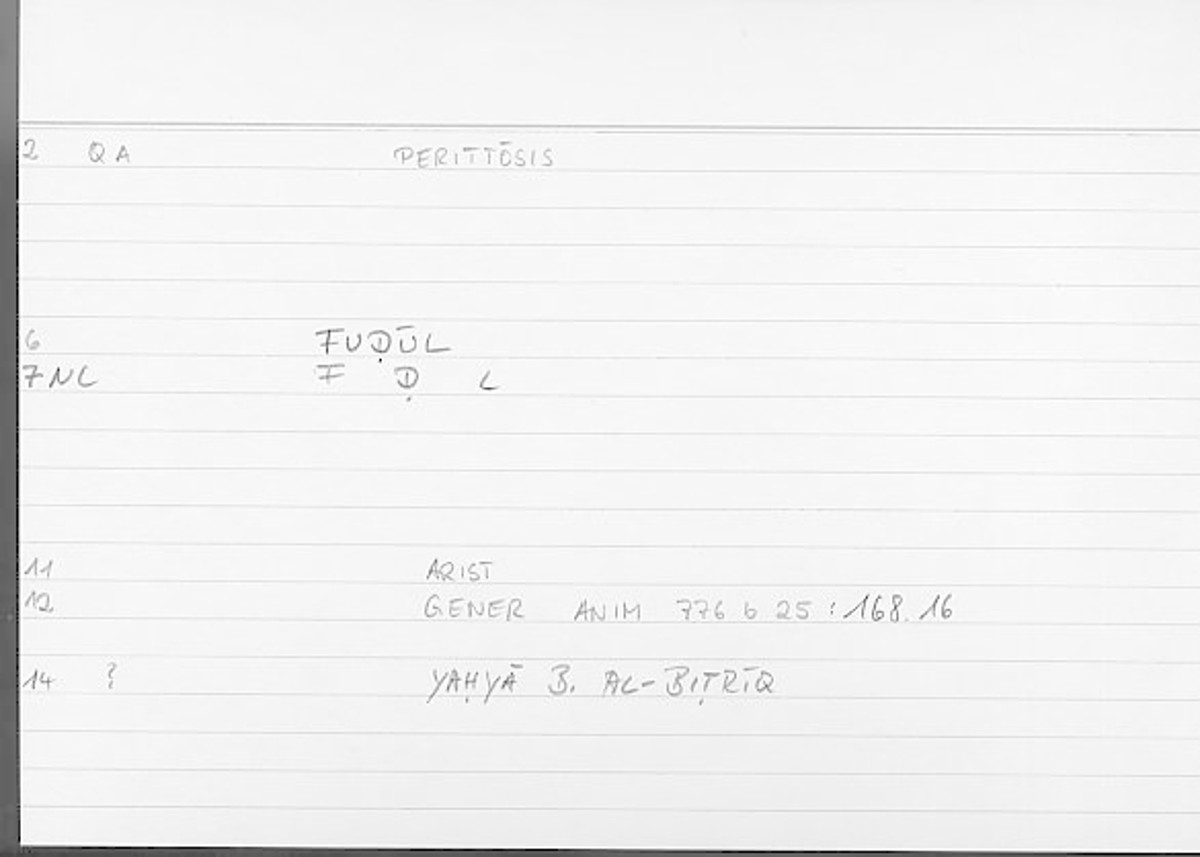 2 QA PERITTŌSIS
6 FUḌŪL
7 NL F Ḍ L
11 ARIST
12 GENER ANIM 776 b 25 : 168.16
14 ? YAḤYĀ B. AL-BIṬRĪQ